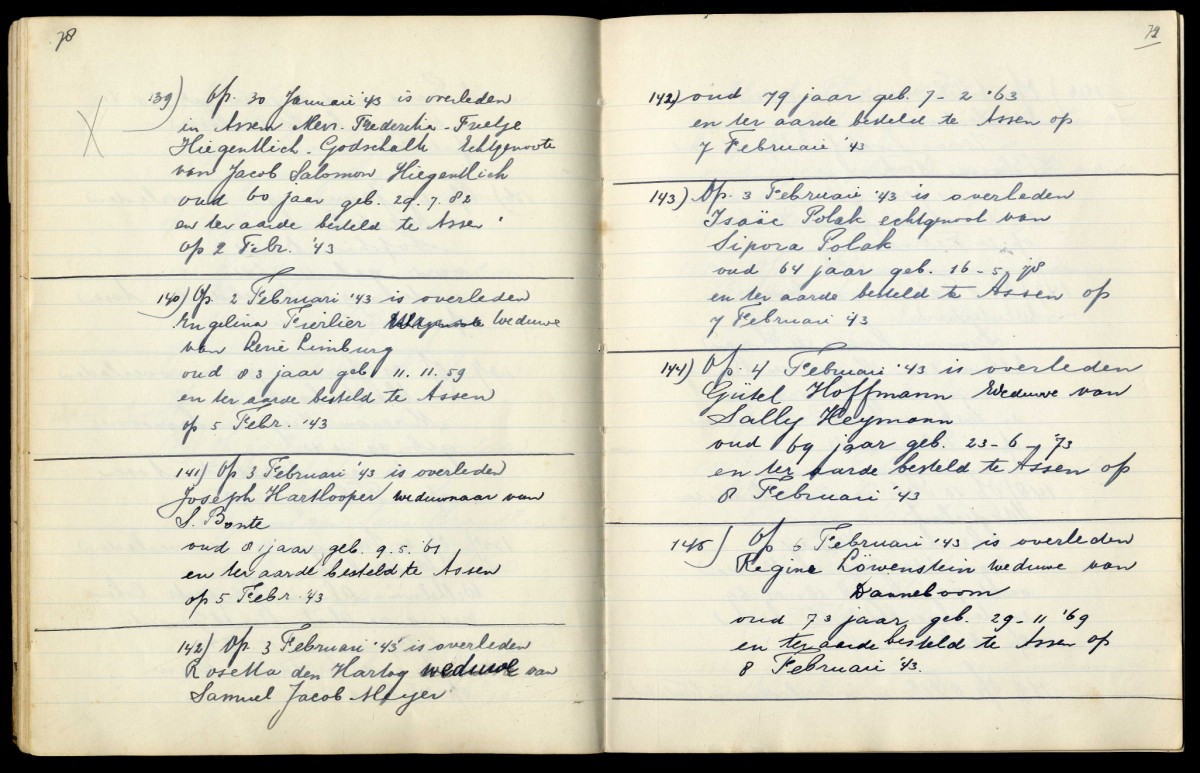 78
139) Op. 30 Januari '43 is overleden
in Assen Mevr. Frederika - Froetje
Hiegentlich - Godschalk Echtgenoote
van Jacob Salomon Hiegentlich
oud 60 jaar geb. 29. 7. 82
en ter aarde besteld te Assen
op 2 Febr. '43
140) Op 2 Februari '43 is overleden
Engelina Fuilier weduwe
van Levie Limburg
oud 83 jaar geb 11. 11. 59
en ter aarde besteld te Assen
op 5 Febr. '43
141) Op 3 Februari '43 is overleden
Joseph Hartlooper weduwnaar van
S. Bonte
oud 81 jaar geb. 9. 5. '61
en ter aarde besteld te Assen
op 5 Febr. '43
142) Op. 3 Februari '43 is overleden
Rosetta den Hartog weduwe van
Samuel Jacob Meijer
79
142) oud 79 jaar geb. 7 - 2 '63
en ter aarde besteld te Assen op
7 Februari '43
143) Op. 3 Februari '43 is overleden
Isaäc Polak echtgenoot van
Sipora Polak
oud 64 jaar geb. 16 - 5 - 78
en ter aarde besteld te Assen op
7 Februari '43
144) Op. 4 Februari '43 is overleden
Gütel Hoffmann Weduwe van
Sally Heymann
oud 69 jaar geb. 23 - 6 - '73
en ter aarde besteld te Assen op
8 Februari '43
145) Op 6 Februari '43 is overleden
Regine Löwenstein weduwe van
Danneboom
oud 73 jaar geb. 29 - 11 '69
en ter aarde besteld te Assen op
8 Februari '43.